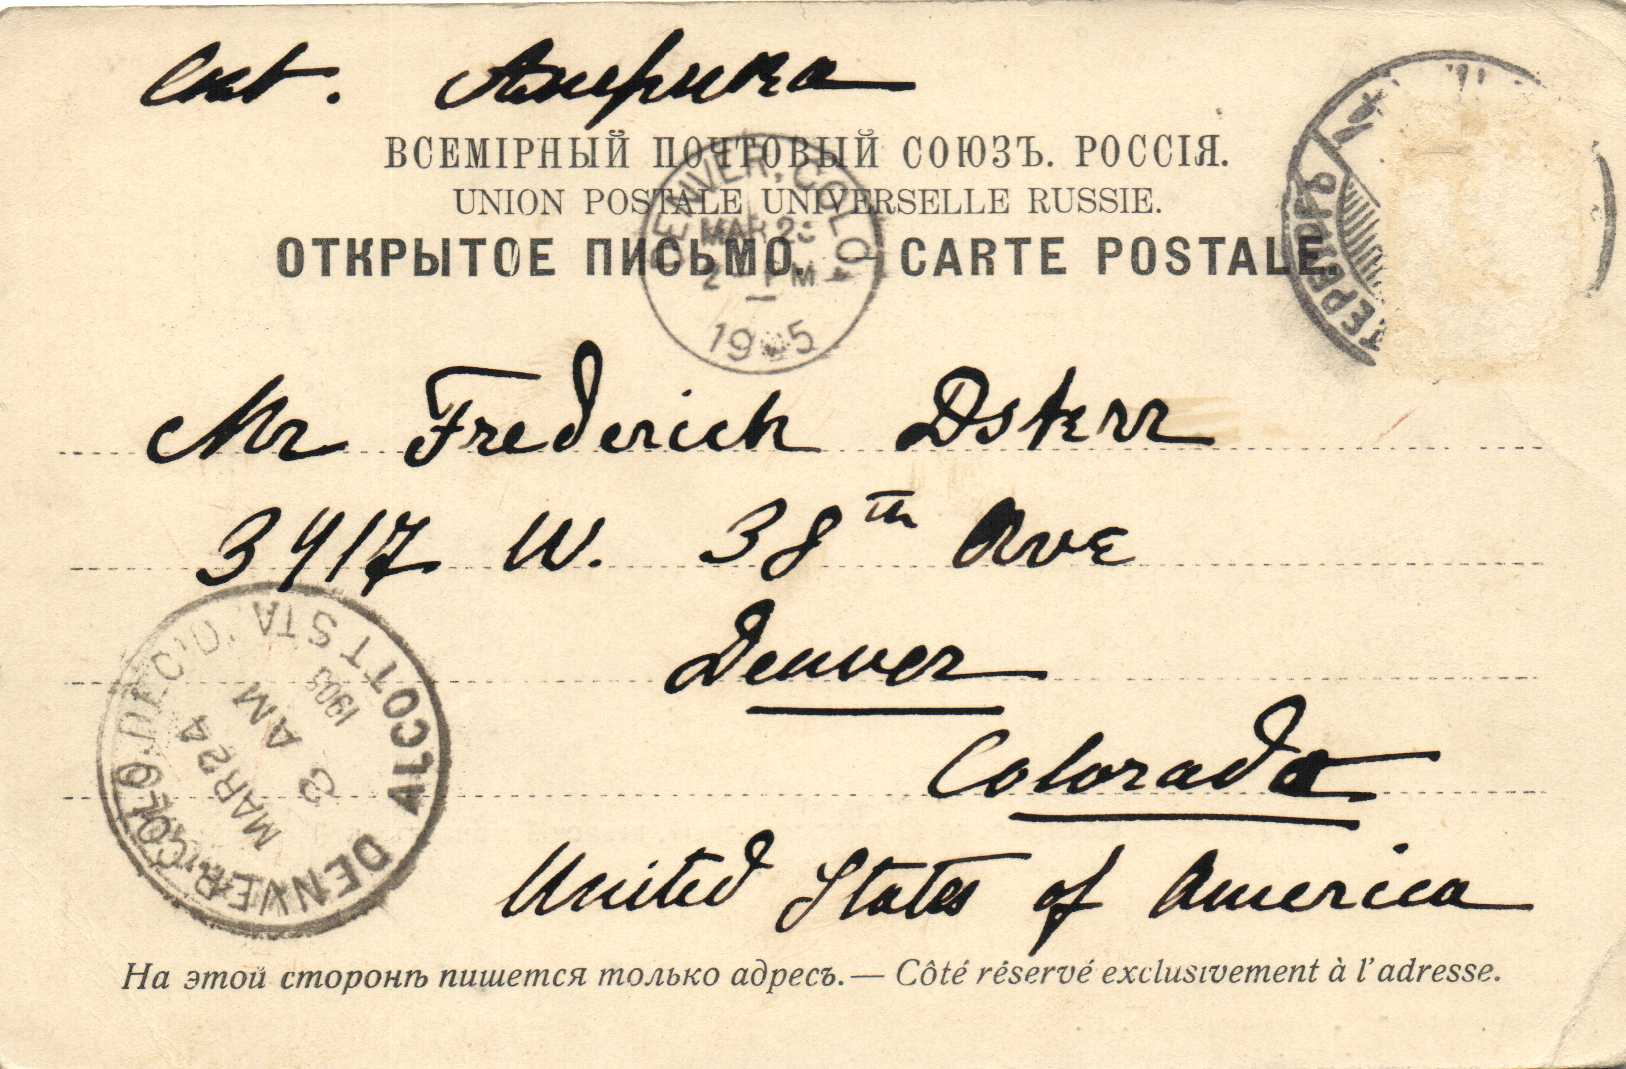 Амерuка
ВСЕМІРНЫЙ ПОЧТОВЫЙ СОЮЗЪ. РОССІЯ.
UNION POSTALE UNIVERSELLE RUSSIE.
ОТКРЫТОЕ ПИСЬМО. CARTE POSTALE.
DENVER, COLO.
MAR 23
2 PM
1905
Mr Frederich
3417 W. 38th Ave
Denver
Colorado
United States of America
DENVER, COLO. ALCOTT STA.
MAR 24
8 AM
1905
На этой сторонѣ пишется только адресъ.— Côté réservé exclusivement à l'adresse.